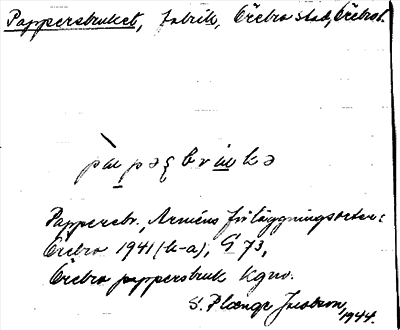 Pappersbruket, fabrik, Örebro stad, Örebro l.
Pappersbr., Arméns förläggningsorter:
Örebro 1941 (h-a), G 73,
Örebro pappersbruk Kgnv.
S. Plænge Jacobson,
1944.